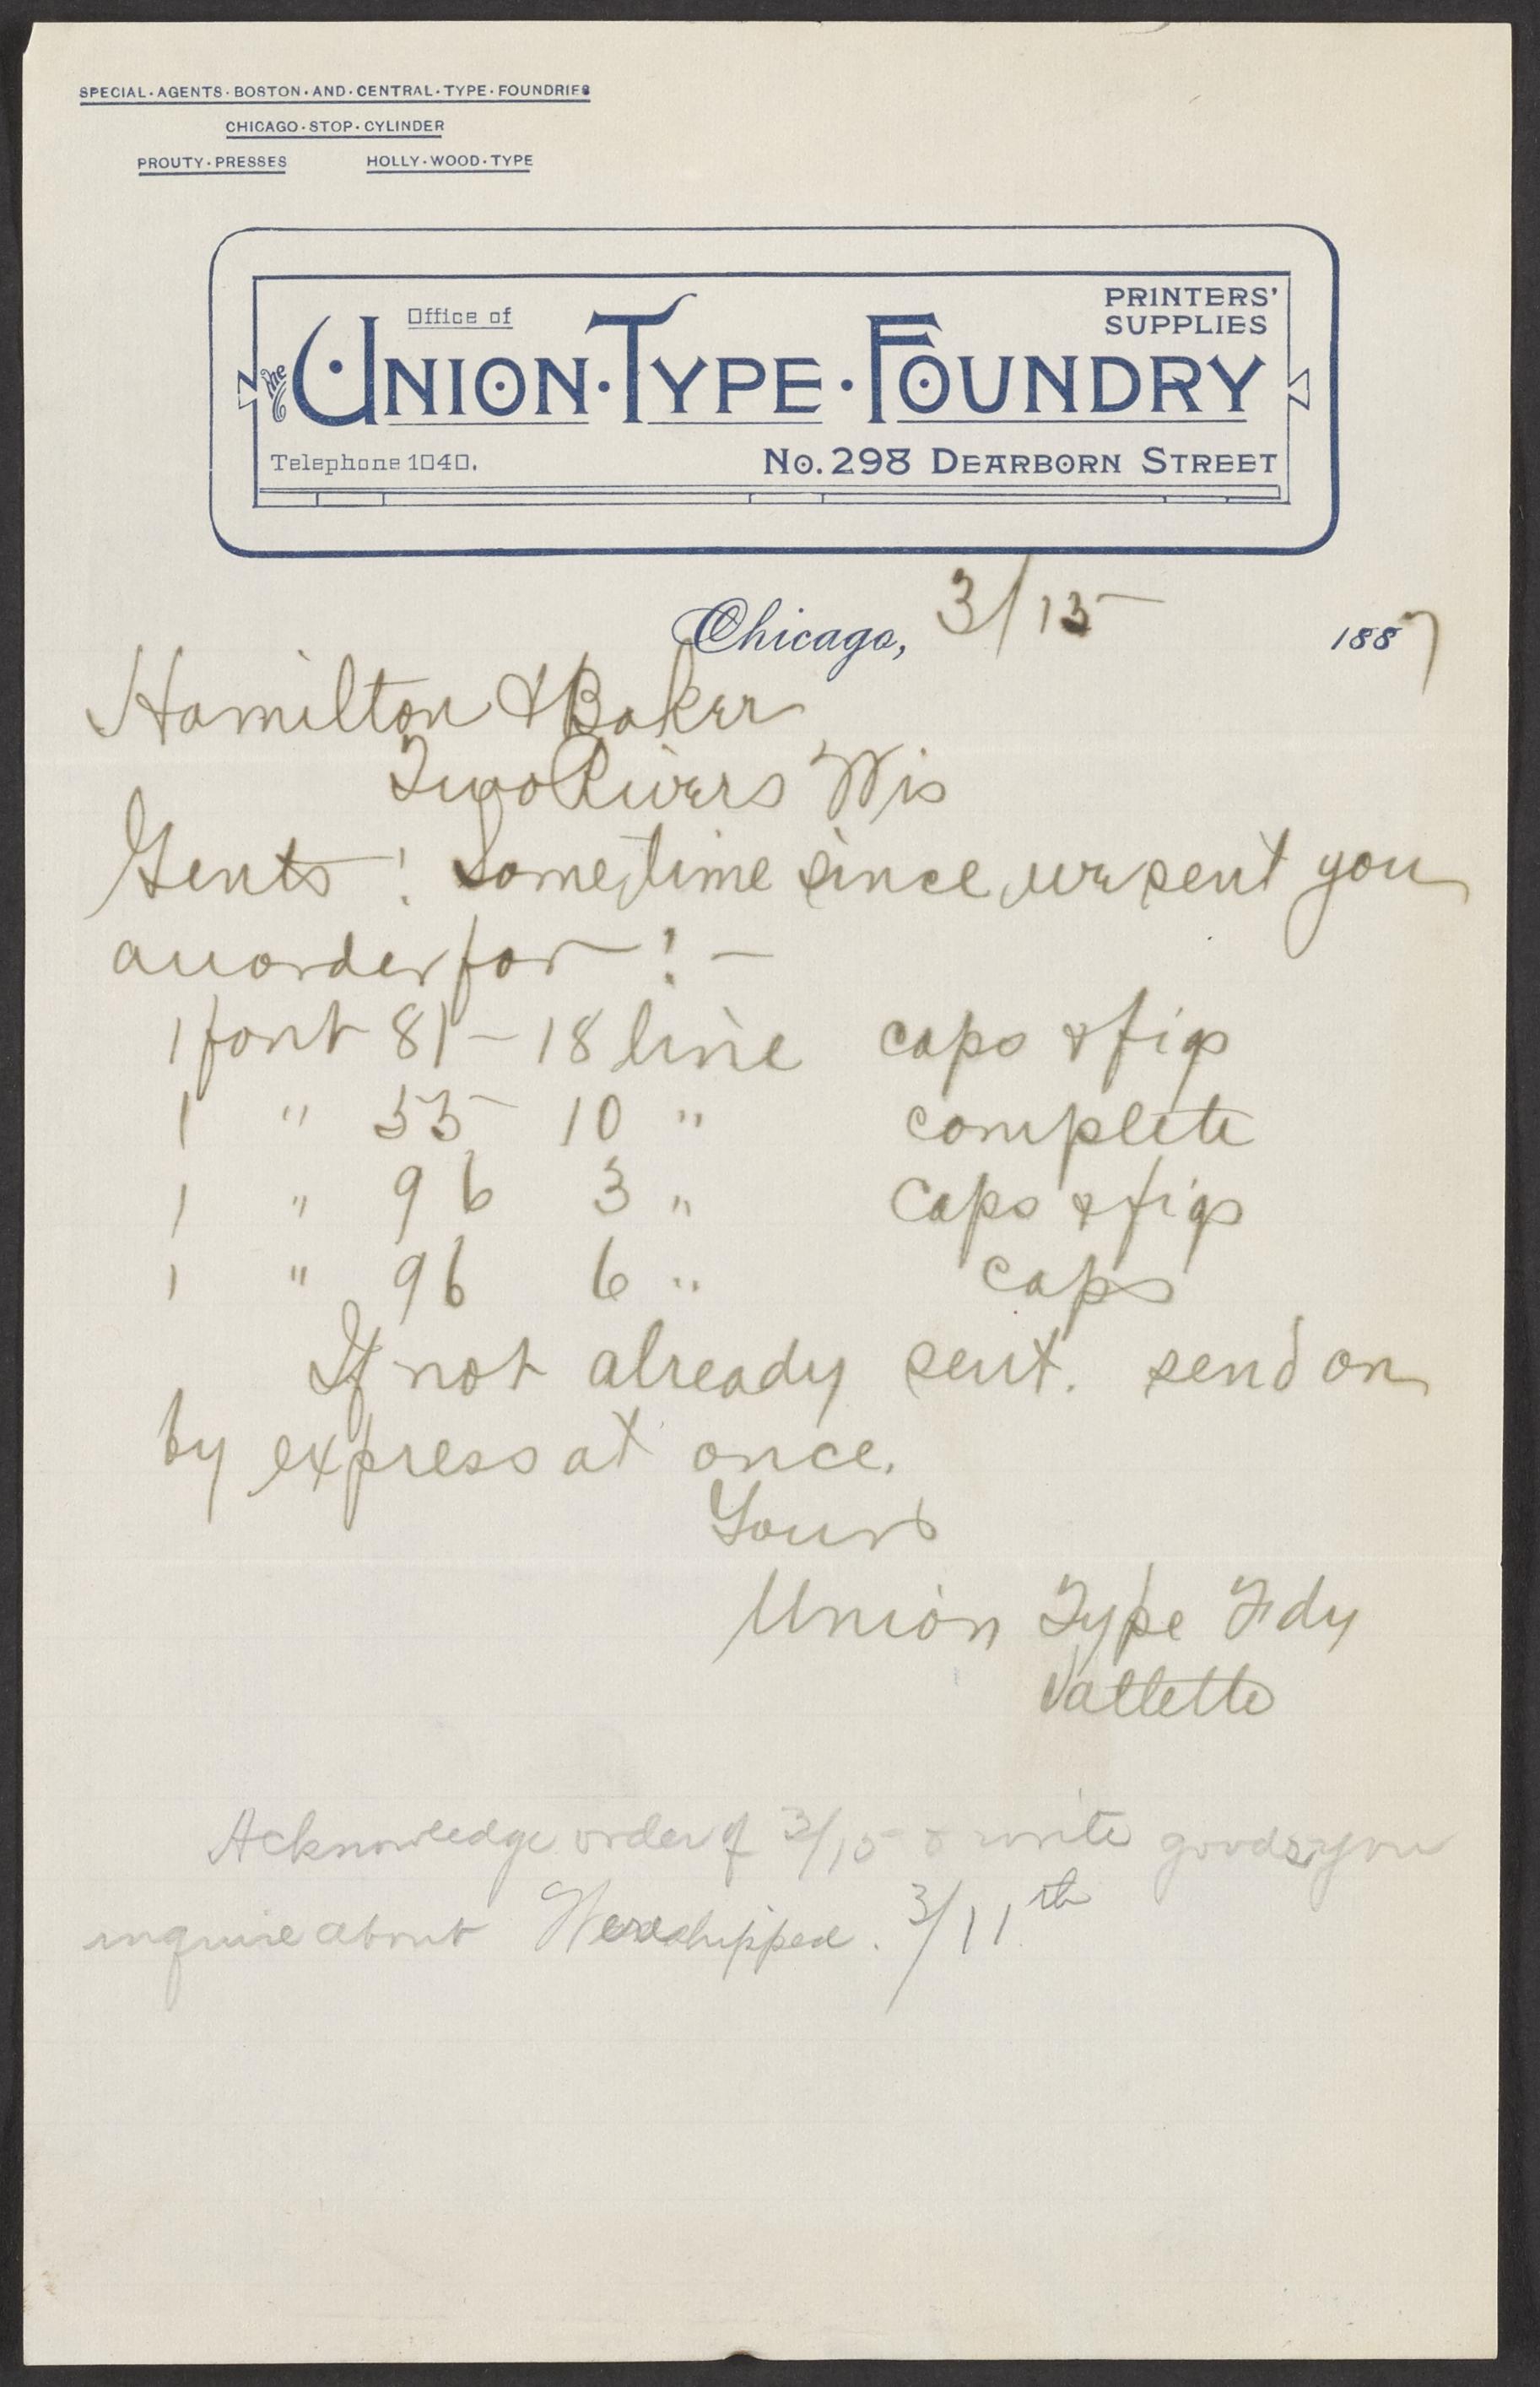 SPECIAL·AGENTS·BOSTON·AND·CENTRAL·TYPE·FOUNDRIES
CHICAGO·STOP·CYLINDER
PROUTY·PRESSES HOLLY·WOOD·TYPE
Office of
PRINTERS'
SUPPLIES
The UNION·TYPE·FOUNDRY
Telephone 1040. No. 298 DEARBORN STREET
Chicago, 3/15 1887
Hamilton & Baker
Two Rivers Wis
Gents! Sometime since we sent you
an order for! —
1 font 81 – 18 line caps & figs
1 " 55 10 " complete
1 " 96 3 " Caps & figs
1 " 96 6 " caps
If not already sent. send on
by express at once.
Yours
Union Type Fdy
Vallette
Acknowledge order of 3/15 & write goods you
inquire about Were shipped. 3/11th